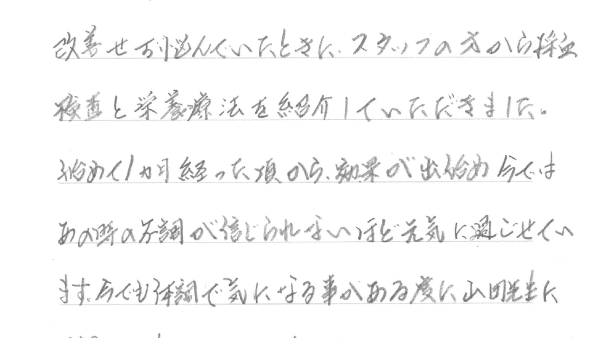 改善せず悩んでいたときに、スタッフの方から採血
検査と栄養療法を紹介していただきました。
始めて1カ月経った頃から、効果が出始め今では
あの時の不調が信じられないほど元気に過ごせてい
ます。今でも体調で気になる事がある度に山田先生に